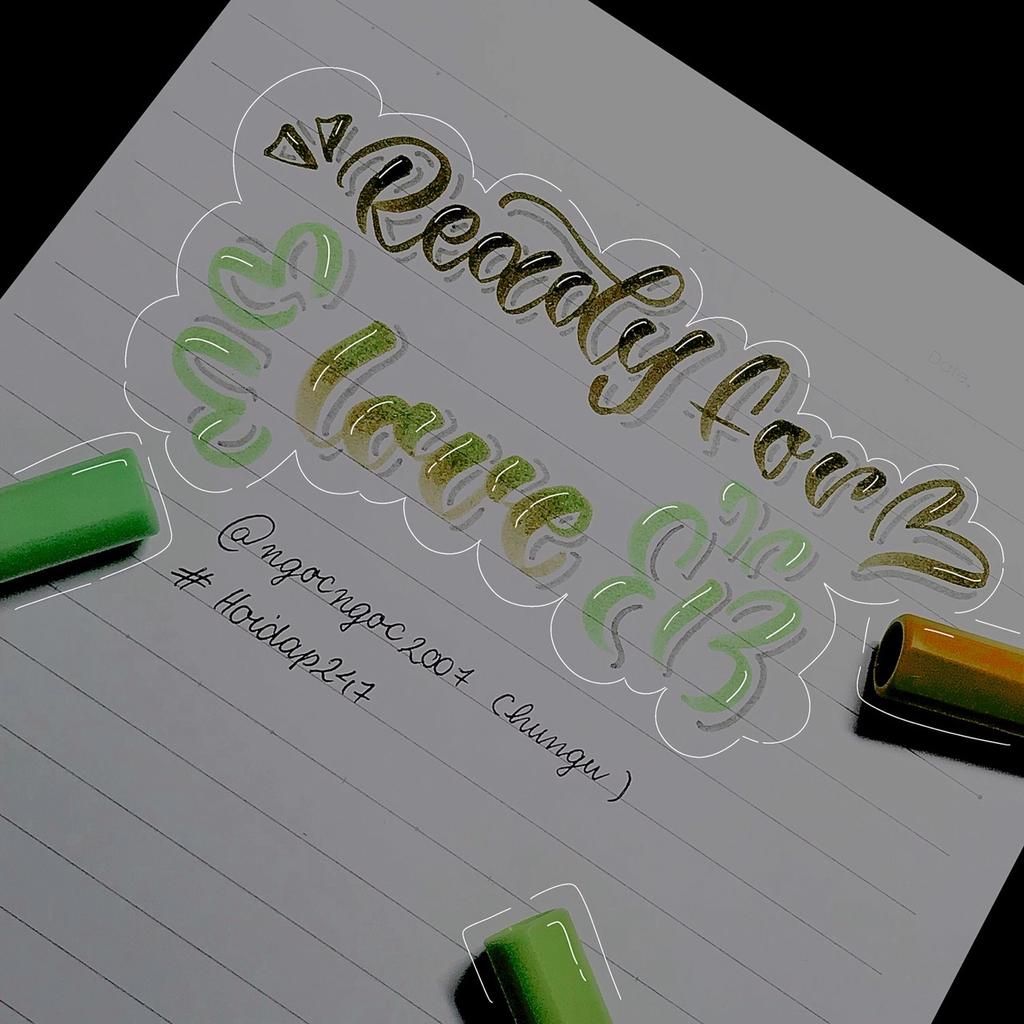 Ready for
love
Date.
@ngocngoc2007 Chungu )
# Hoidap247